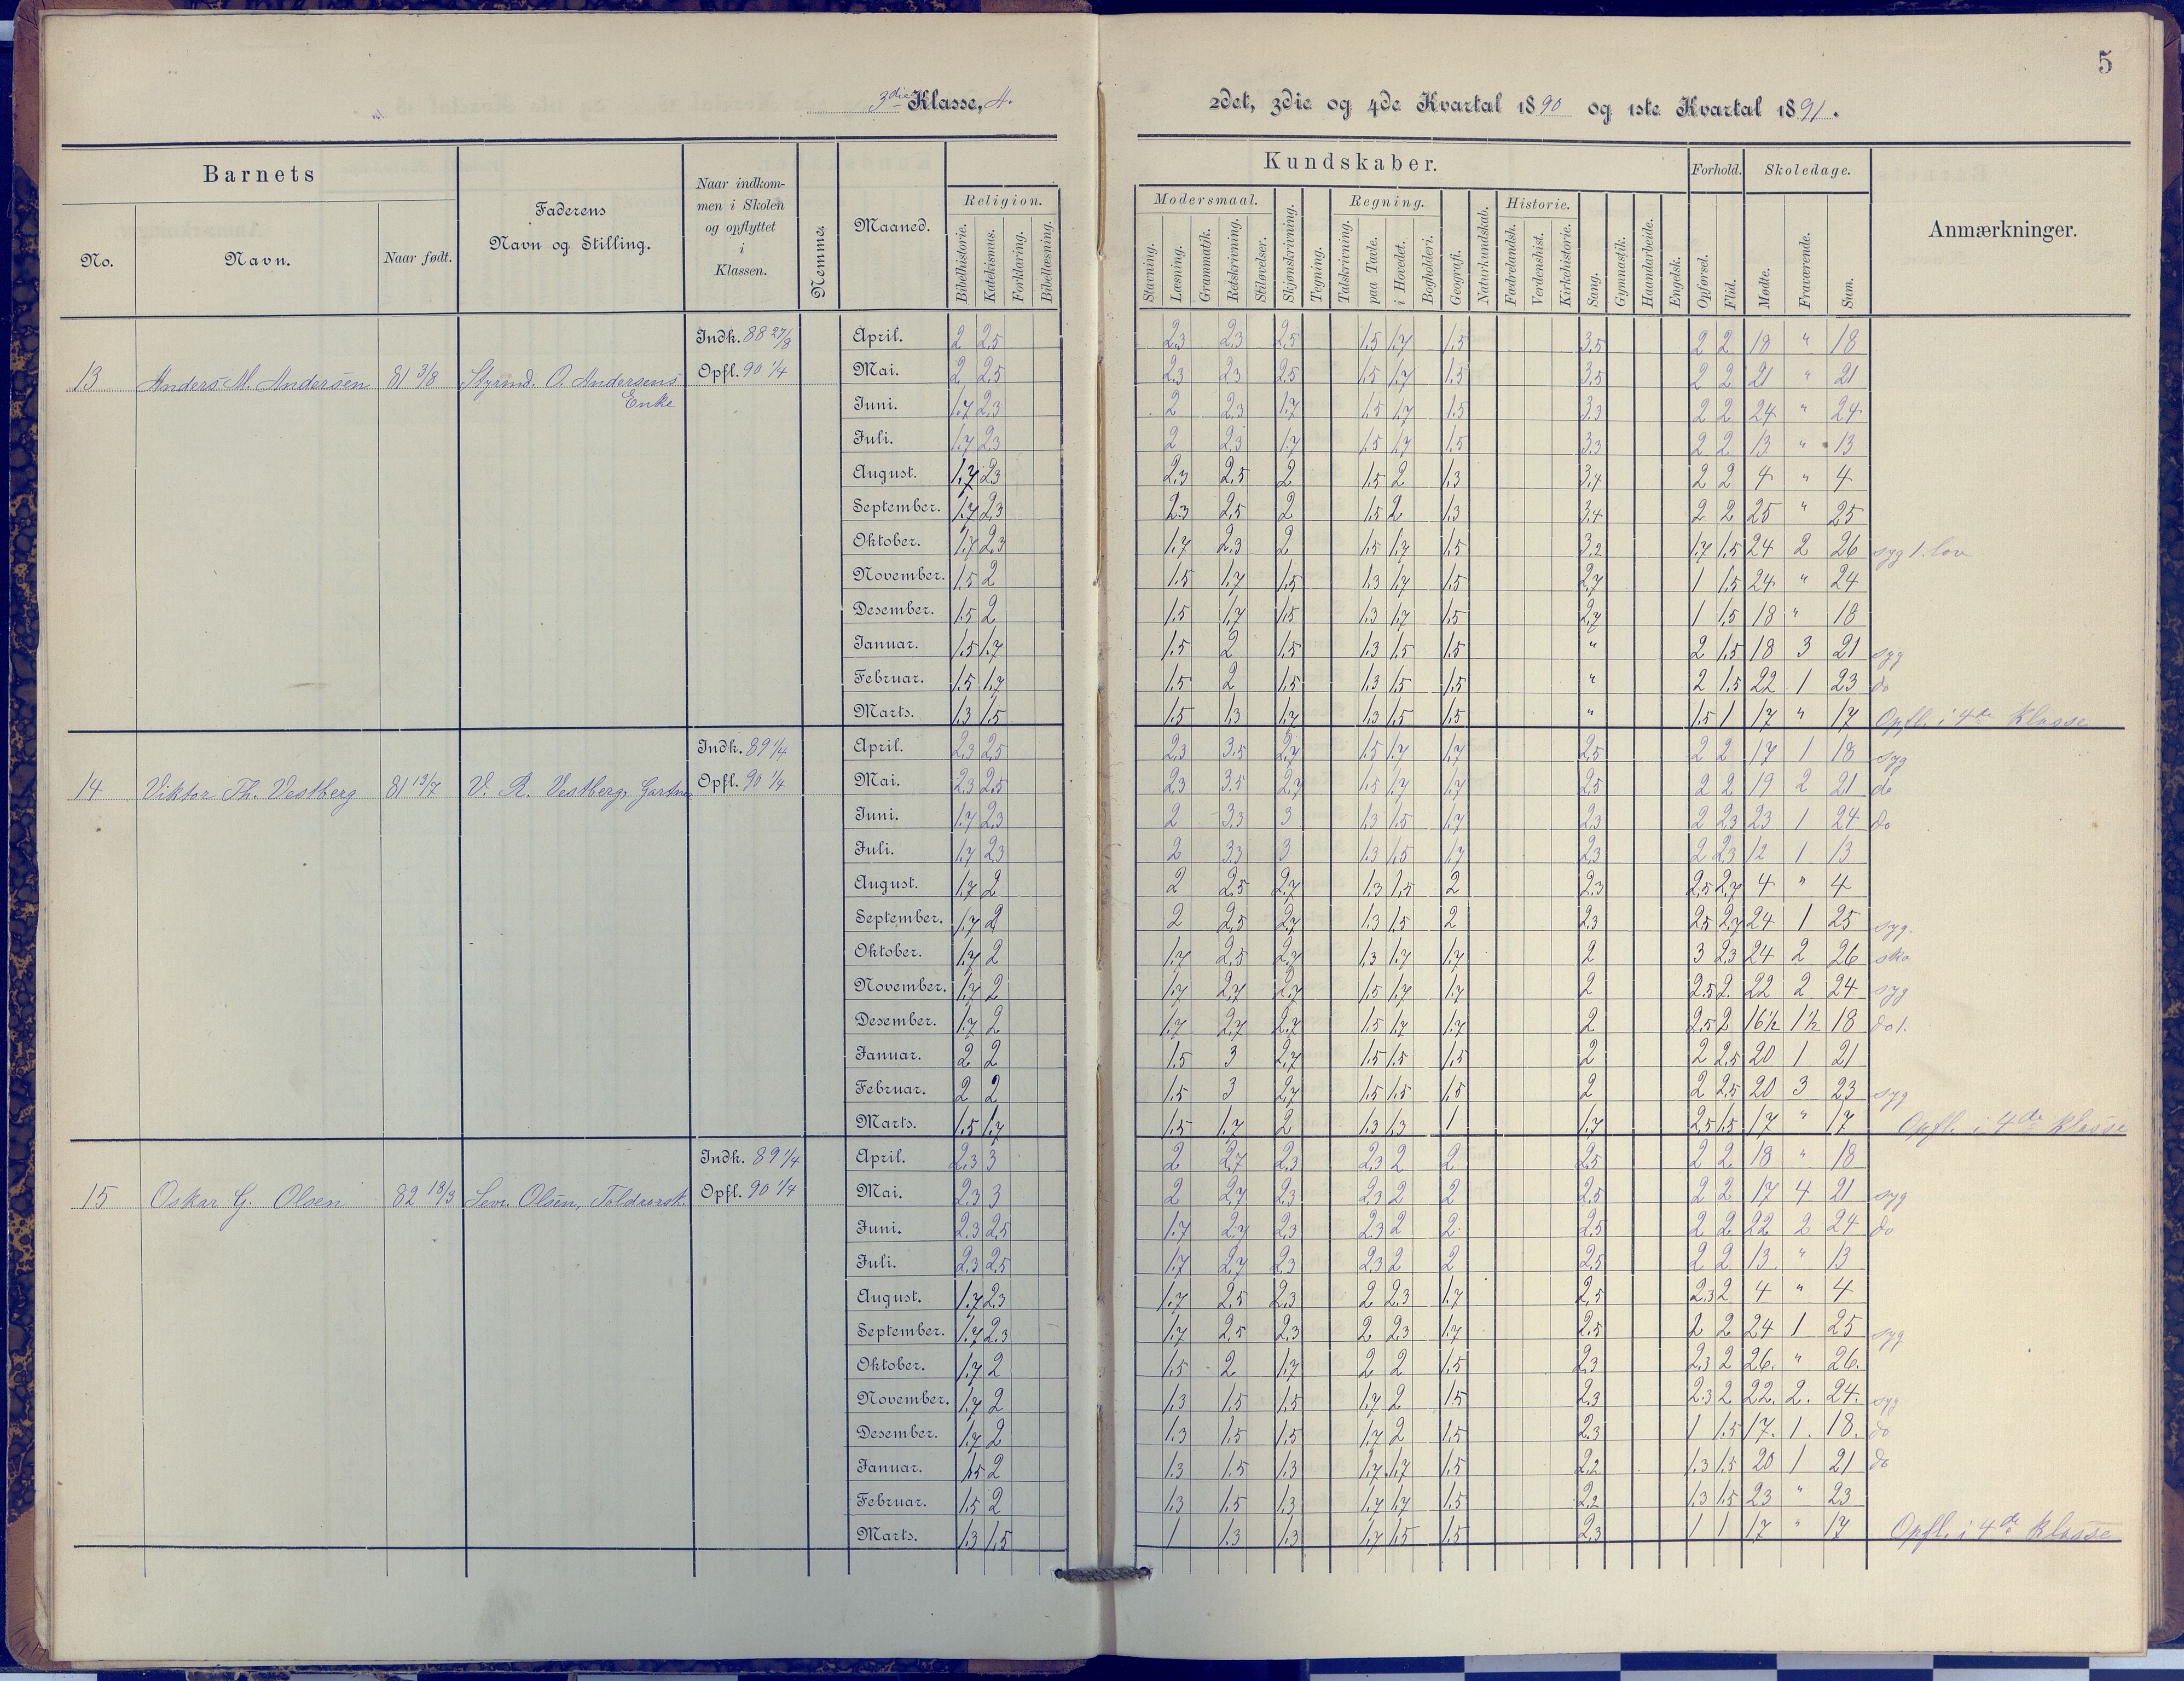 5
3die Klasse, A.
2det, 3die og 4de Kvartal 1890 og 1ste Kvartal 1891.
Barnets
No.
Navn.
Naar født.
Faderens
Navn og Stilling.
Naar indkom-
men i Skolen
og opflyttet
i
Klassen.
Nemme.
Maaned.
Religion.
Bibelhistorie.
Katekismus.
Forklaring.
Bibellæsning.
Kundskaber.
Modersmaal.
Stavning.
Læsning.
Grammatik.
Retskrivning.
Stiløvelser.
Skjønskrivning.
Tegning.
Regning.
Talskrivning.
paa Tavle.
i Hovedet.
Bogholderi.
Geografi.
Naturkundskab.
Historie.
Fædrelandsh.
Verdenshist.
Kirkehistorie.
Sang.
Gymnastik.
Haandarbeide.
Engelsk.
Forhold.
Opførsel.
Flid.
Skoledage.
Mødte.
Fraværende.
Sum.
Anmærkninger.
13 Anders M. Andersen 81 3/8 Styrmd. O. Andersens
Enke
Indk. 88 27/8
Opfl. 90 1/4
April. 2 2.5 2.3 2.3 2.5 1.5 1.7 1.5 3.5 2 2 18 " 18
Mai. 2 2.5 2.3 2.3 2.5 1.5 1.7 1.5 3.5 2 2 21 " 21
Juni. 1.7 2.3 2 2.3 1.7 1.5 1.7 1.5 3.3 2 2 24 " 24
Juli. 1.7 2.3 2 2.3 1.7 1.5 1.7 1.5 3.3 2 2 13 " 13
August. 1.7 2.3 2.3 2.5 2 1.5 2 1.3 3.4 2 2 4 " 4
September. 1.7 2.3 2.3 2.5 2 1.5 2 1.3 3.4 2 2 25 " 25
Oktober. 1.7 2.3 1.7 2.3 2 1.5 1.7 1.5 3.2 1.7 1.5 24 2 26 syg 1. lov
November. 1.5 2 1.5 1.7 1.5 1.3 1.7 1.5 2.7 1 1.5 24 " 24
Desember. 1.5 2 1.5 1.7 1.5 1.3 1.7 1.5 2.7 1 1.5 18 " 18
Januar. 1.5 1.7 1.5 2 1.5 1.3 1.5 1.5 " 2 1.5 18 3 21 syg
Februar. 1.5 1.7 1.5 2 1.5 1.3 1.5 1.5 " 2 1.5 22 1 23 do
Marts. 1.3 1.5 1.5 1.3 1.7 1.3 1.5 1.5 " 1.5 1 17 " 17 Opfl. i 4de Klasse
14 Viktor Th. Vestberg 81 13/7 V. R. Vestberg, Gartner
Indk. 89 1/4
Opfl. 90 1/4
April. 2.3 2.5 2.3 3.5 2.7 1.5 1.7 1.7 2.5 2 2 17 1 18 syg
Mai. 2.3 2.5 2.3 3.5 2.7 1.5 1.7 1.7 2.5 2 2 19 2 21 do
Juni. 1.7 2.3 2 3.3 3 1.3 1.5 1.7 2.3 2 2.3 23 1 24 do
Juli. 1.7 2.3 2 3.3 3 1.3 1.5 1.7 2.3 2 2.3 12 1 13
August. 1.7 2 2 2.5 2.7 1.3 1.5 2 2.3 2.5 2.7 4 " 4
September. 1.7 2 2 2.5 2.7 1.3 1.5 2 2.3 2.5 2.7 24 1 25 syg.
Oktober. 1.7 2 1.7 2.5 2.7 1.3 1.7 1.7 2 3 2.3 24 2 26 sko
November. 1.7 2 1.7 2.7 2.7 1.5 1.7 1.7 2 2.5 2. 22 2 24 syg
Desember. 1.7 2 1.7 2.7 2.7 1.5 1.7 1.7 2 2.5 2 16½ 1½ 18 do 1.
Januar. 2 2 1.5 3 2.7 1.5 1.5 1.5 2 2 2.5 20 1 21
Februar. 2 2 1.5 3 2.7 1.5 1.5 1.5 2 2 2.5 20 3 23 syg
Marts. 1.5 1.7 1.5 1.7 2 1.3 1.3 1 1.7 2.5 1.5 17 " 17 Opfl. i 4de Klasse
15 Oskar G. Olsen 82 18/3 Sevr. Olsen, Toldrorsk.
Indk. 89 1/4
Opfl. 90 1/4
April. 2.3 3 2 2.7 2.3 2.3 2 2 2.5 2 2 18 " 18
Mai. 2.3 3 2 2.7 2.3 2.3 2 2 2.5 2 2 17 4 21 syg
Juni. 2.3 2.5 1.7 2.7 2.3 2.3 2 2 2.5 2 2 22 2 24 do
Juli. 2.3 2.5 1.7 2.7 2.3 2.3 2 2 2.5 2 2 13. " 13
August. 1.7 2.3 1.7 2.5 2.3 2 2.3 1.7 2.5 2.3 2 4 " 4
September. 1.7 2.3 1.7 2.5 2.3 2 2.3 1.7 2.5 2 2 24 1 25 syg
Oktober. 1.7 2 1.5 2 1.7 2 2 1.5 2.3 2.3 2 26. " 26.
November. 1.7 2 1.3 1.5 1.5 1.7 2 1.5 2.3 2.3 2 22. 2. 24. syg
Desember. 1.7 2 1.3 1.5 1.5 1.7 2 1.5 2.3 1 1.5 17. 1. 18. do
Januar. 1.5 2 1.3 1.5 1.3 1.7 1.7 1.5 2.2 1.3 1.5 20 1 21 do
Februar. 1.5 2 1.3 1.5 1.3 1.7 1.7 1.5 2.2 1.3 1.5 23 " 23
Marts. 1.3 1.5 1 1.3 1.3 1.7 1.5 1.5 2.3 1 1 17 " 17 Opfl. i 4de Klasse